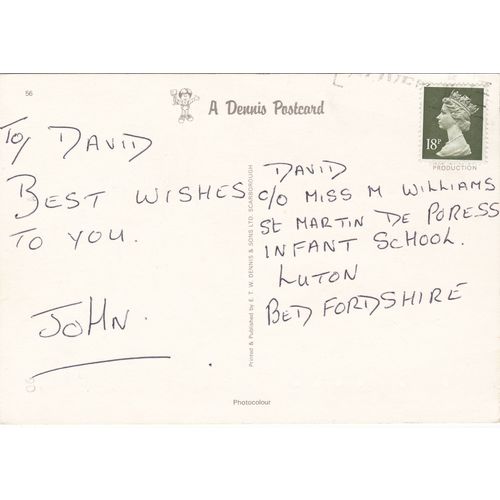 56
A Dennis Postcard
18P
PRODUCTION
TO/ DAVID
BEST WISHES
TO YOU.
JOHN.
DAVID
c/o MISS M WILLIAMS
ST MARTIN DE PORESS
INFANT SCHOOL.
LUTON
BEDFORDSHIRE
Printed & Published by E. T. W. DENNIS & SONS LTD. SCARBOROUGH
Photocolour